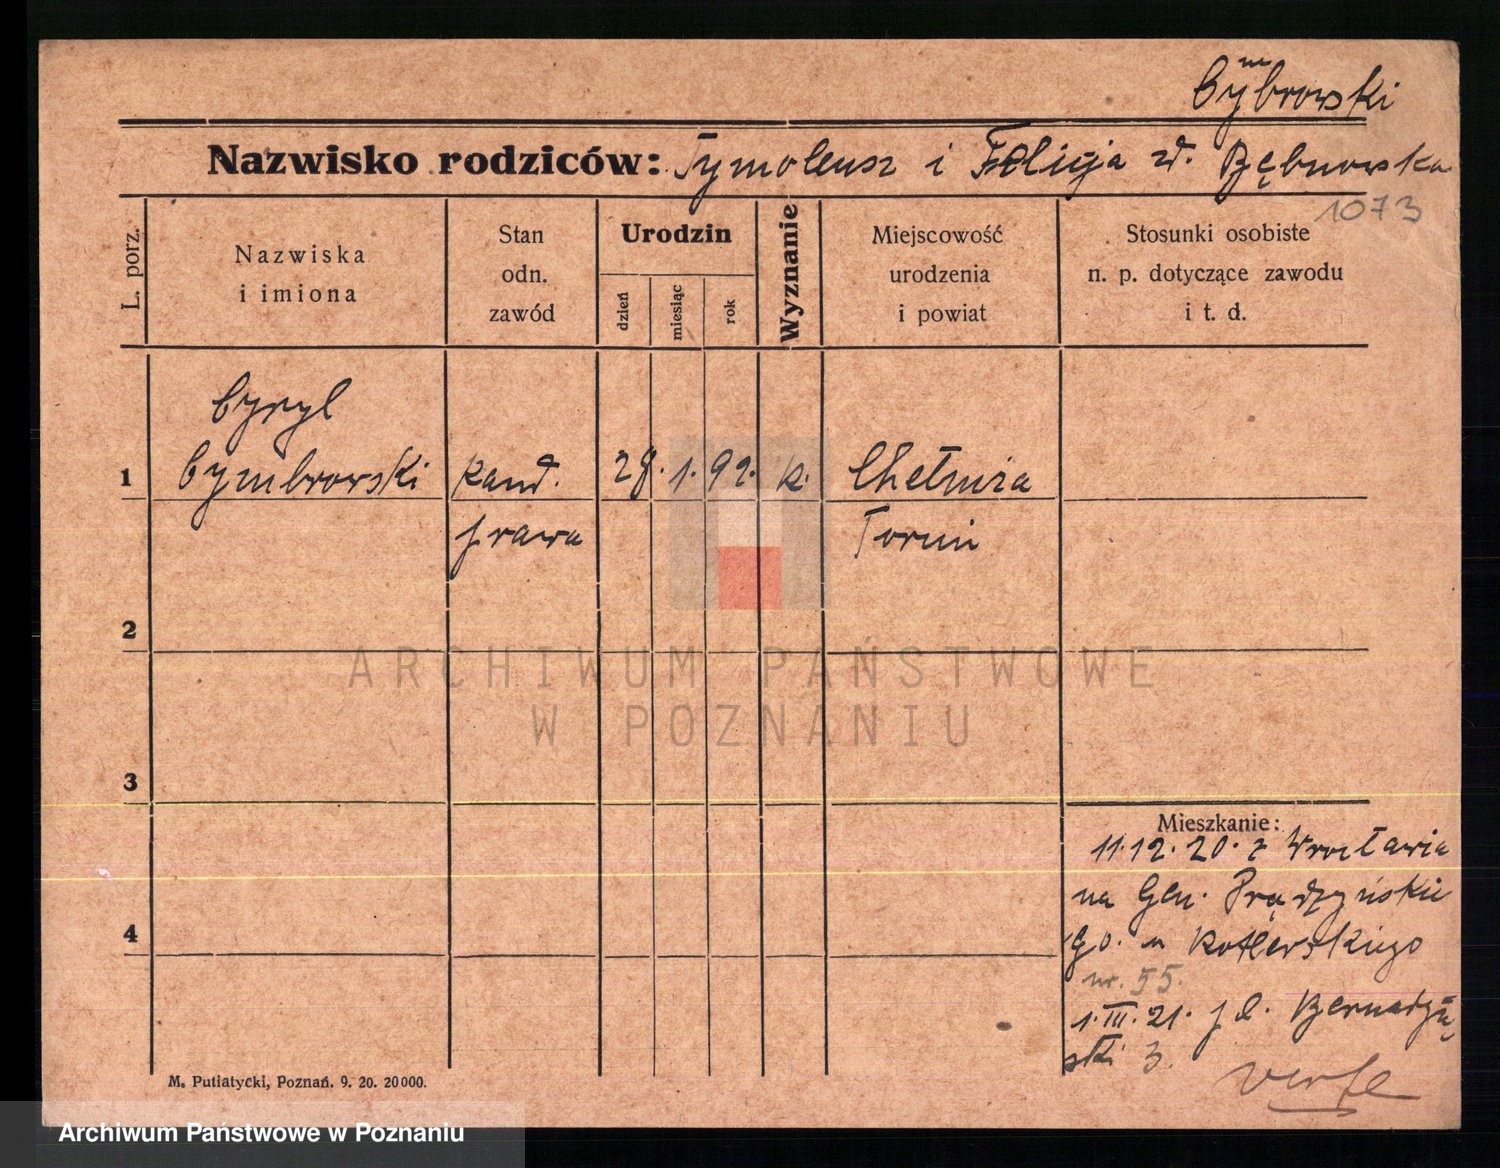 Cymbrowski
Nazwisko rodziców: Tymoleusz i Felicja zd. Bębnowska
1073
L. porz.
Nazwiska
i imiona
Stan
odn.
zawód
Urodzin
dzień
miesiąc
rok
Wyznanie
Miejscowość
urodzenia
i powiat
Stosunki osobiste
n. p. dotyczące zawodu
i t. d.
Cyryl
1 Cymbrowski kand. 28. 1. 92. k. Chełmża
prawa Toruń
2
ARCHIWUM PAŃSTWOWE
W POZNANIU
3
Mieszkanie:
11.12.20. z Wrocławia
na Gen. Prądzyńskie
4
go. u Kotlerskiego
nr. 55.
1.III.21. pl. Bernardyń
ski 3.
verte
M. Putiatycki, Poznań. 9. 20. 20000.
Archiwum Państwowe w Poznaniu